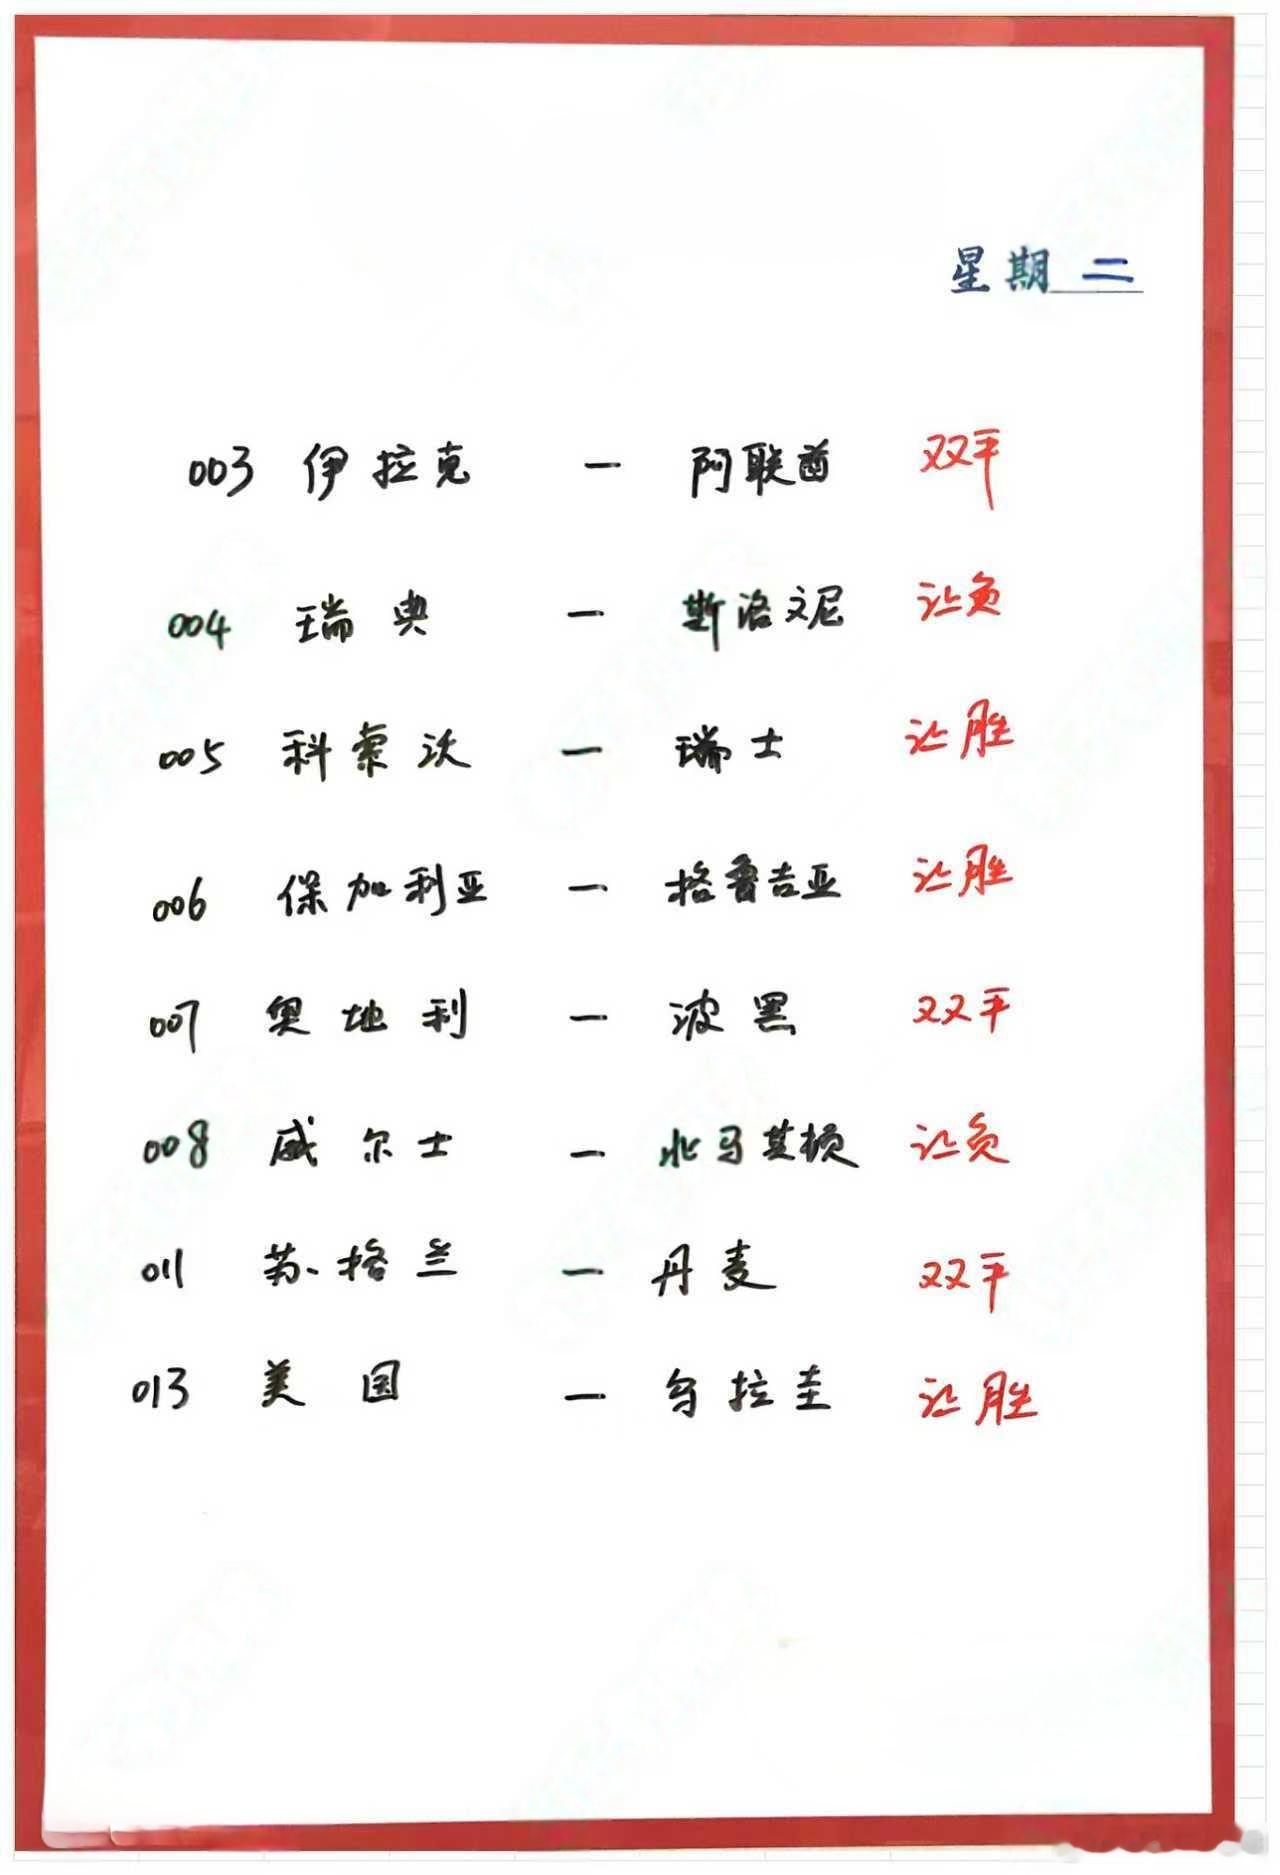 星期二
003 伊拉克 — 阿联酋 双平
004 瑞典 — 斯洛文尼 让负
005 科索沃 — 瑞士 让胜
006 保加利亚 — 格鲁吉亚 让胜
007 奥地利 — 波黑 双平
008 威尔士 — 北马其顿 让负
011 苏格兰 — 丹麦 双平
013 美国 — 乌拉圭 让胜